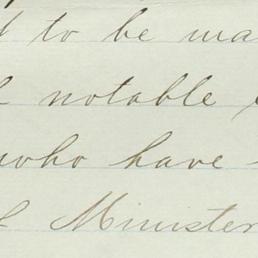 to be
notable
who have
Minister